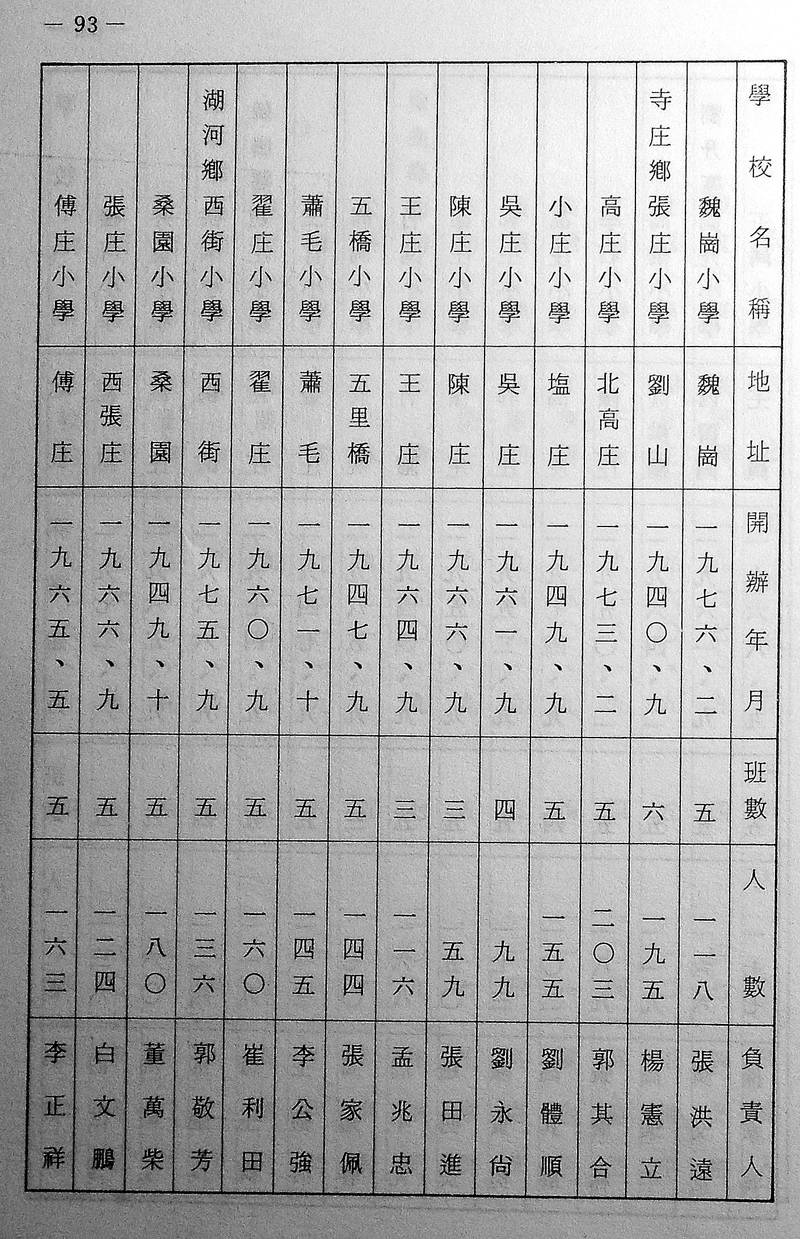 — 93 —
學校名稱 地址 開辦年月 班數 人數 負責人
魏崗小學 魏崗 一九七六、二 五 一一八 張洪遠
寺庄鄉張庄小學 劉山 一九四〇、九 六 一九五 楊憲立
高庄小學 北高庄 一九七三、二 五 二〇三 郭其合
小庄小學 塩庄 一九四九、九 五 一五五 劉體順
吳庄小學 吳庄 一九六一、九 四 九九 劉永尙
陳庄小學 陳庄 一九六六、九 三 五九 張田進
王庄小學 王庄 一九六四、九 三 一一六 孟兆忠
五橋小學 五里橋 一九四七、九 五 一四四 張家佩
蕭毛小學 蕭毛 一九七一、十 五 一四五 李公強
翟庄小學 翟庄 一九六〇、九 五 一六〇 崔利田
湖河鄉西街小學 西街 一九七五、九 五 一三六 郭敬芳
桑園小學 桑園 一九四九、十 五 一八〇 董萬柴
張庄小學 西張庄 一九六六、九 五 一二四 白文鵬
傅庄小學 傅庄 一九六五、五 五 一六三 李正祥